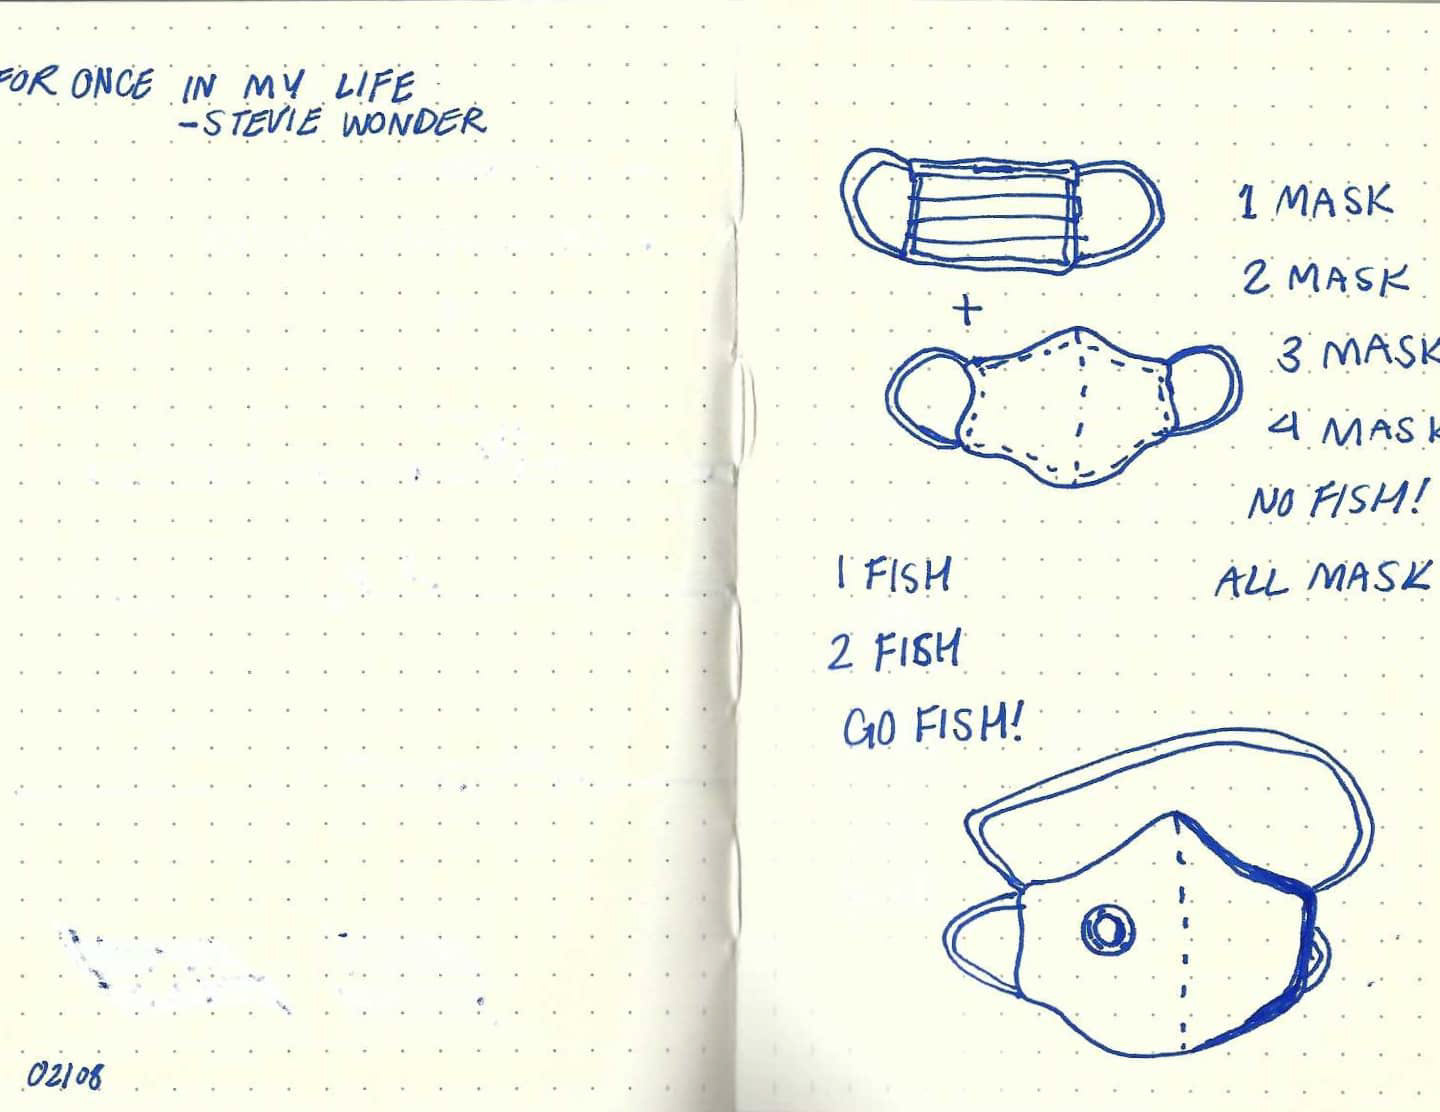 FOR ONCE IN MY LIFE
-STEVIE WONDER
02/08
1 MASK
2 MASK
3 MASK
4 MASK
NO FISH!
ALL MASK
1 FISH
2 FISH
GO FISH!